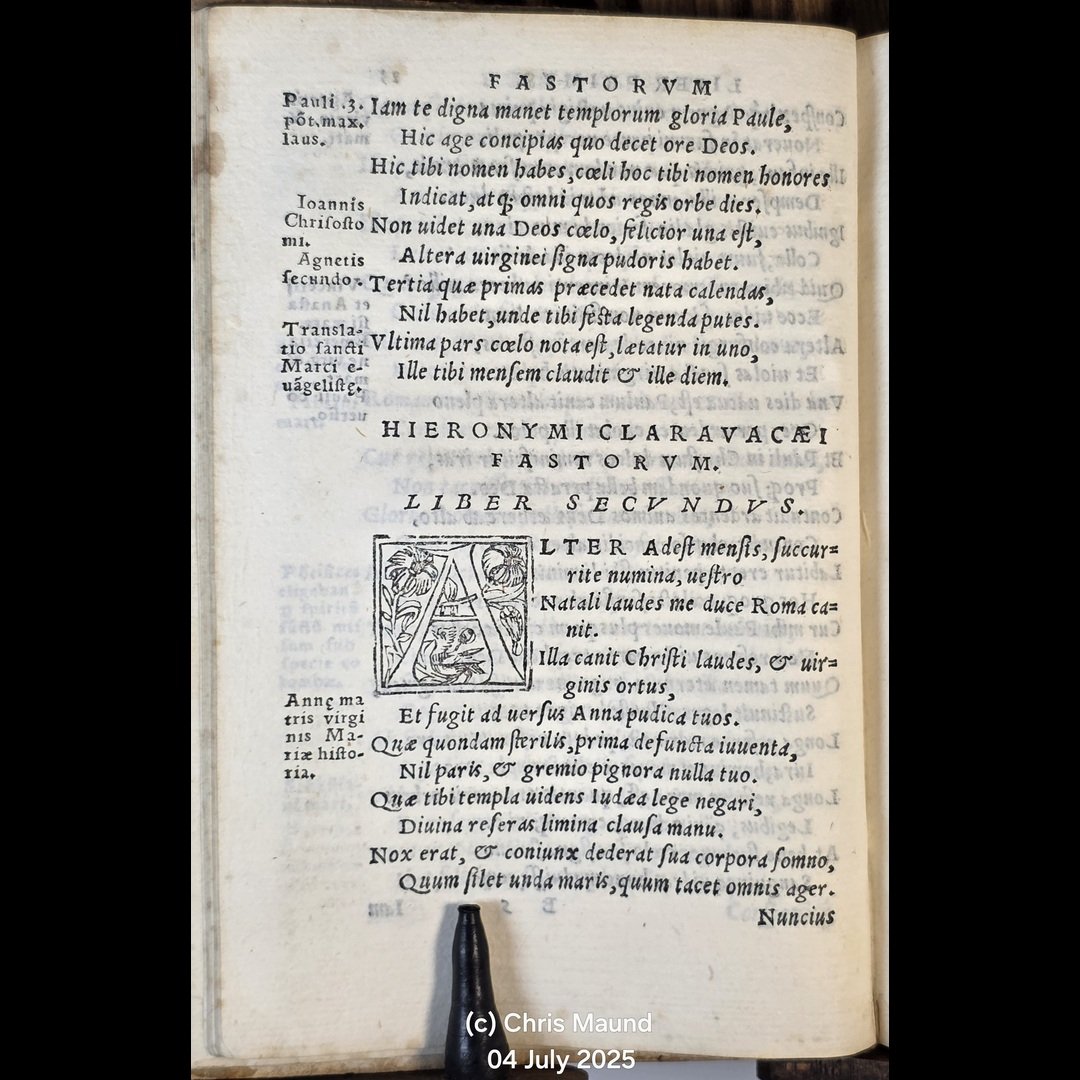 FASTORVM
Pauli .3.
põt.max.
laus.
Iam te digna manet templorum gloria Paule,
Hic age concipias quo decet ore Deos.
Hic tibi nomen habes, cœli hoc tibi nomen honores
Indicat, atq; omni quos regis orbe dies.
Ioannis
Chrisosto
mi.
Non uidet una Deos cœlo, felicior una est,
Altera uirginei signa pudoris habet.
Agnetis
secundo.
Tertia quæ primas præcedet nata calendas,
Nil habet, unde tibi festa legenda putes.
Transla-
tio sancti
Marci e-
uãgelistę.
Vltima pars cœlo nota est, lætatur in uno,
Ille tibi mensem claudit & ille diem.
HIERONYMI CLARAVACÆI
FASTORVM.
LIBER SECVNDVS.
ALTER Adest mensis, succur=
rite numina, uestro
Natali laudes me duce Roma ca=
nit.
Illa canit Christi laudes, & uir=
ginis ortus,
Et fugit ad uersus Anna pudica tuos.
Annę ma
tris virgi
nis Ma-
riæ histo-
ria.
Quæ quondam sterilis, prima defuncta iuuenta,
Nil paris, & gremio pignora nulla tuo.
Quæ tibi templa uidens Iudæa lege negari,
Diuina referas limina clausa manu.
Nox erat, & coniunx dederat sua corpora somno,
Quum silet unda maris, quum tacet omnis ager.
Nuncius
(c) Chris Maund
04 July 2025